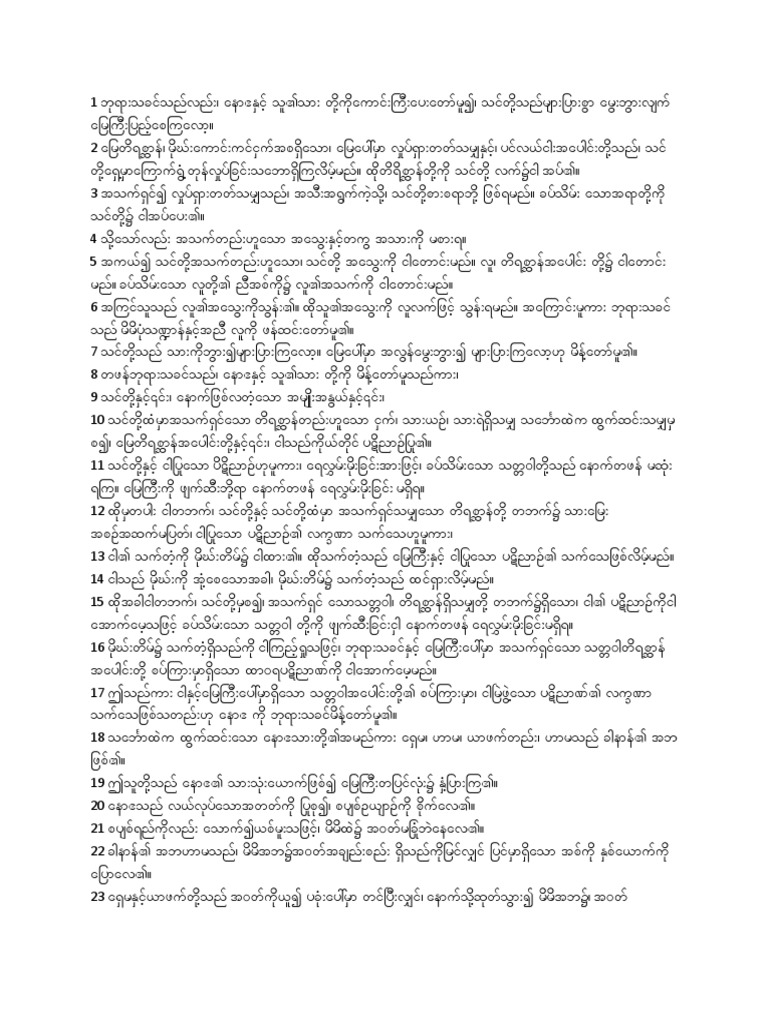 1 ဘုရားသခင်သည်လည်း၊ နောဧနှင့် သူ၏သား တို့ကိုကောင်းကြီးပေးတော်မူ၍၊ သင်တို့သည်များပြားစွာ မွေးဘွားလျက်
မြေကြီးပြည့်စေကြလော့။
2 မြေတိရစ္ဆာန်၊ မိုဃ်းကောင်းကင်ငှက်အစရှိသော၊ မြေပေါ်မှာ လှုပ်ရှားတတ်သမျှနှင့်၊ ပင်လယ်ငါးအပေါင်းတို့သည်၊ သင်
တို့ရှေ့မှာကြောက်ရွံ့တုန်လှုပ်ခြင်းသဘောရှိကြလိမ့်မည်။ ထိုတိရိစ္ဆာန်တို့ကို သင်တို့ လက်၌ငါ အပ်၏။
3 အသက်ရှင်၍ လှုပ်ရှားတတ်သမျှသည်၊ အသီးအရွက်ကဲ့သို့၊ သင်တို့စားစရာဘို့ ဖြစ်ရမည်။ ခပ်သိမ်း သောအရာတို့ကို
သင်တို့၌ ငါအပ်ပေး၏။
4 သို့သော်လည်း အသက်တည်းဟူသော အသွေးနှင့်တကွ အသားကို မစားရ။
5 အကယ်၍ သင်တို့အသက်တည်းဟူသော၊ သင်တို့ အသွေးကို ငါတောင်းမည်။ လူ၊ တိရစ္ဆာန်အပေါင်း တို့၌ ငါတောင်း
မည်။ ခပ်သိမ်းသော လူတို့၏ ညီအစ်ကို၌ လူ၏အသက်ကို ငါတောင်းမည်။
6 အကြင်သူသည် လူ၏အသွေးကိုသွန်း၏။ ထိုသူ၏အသွေးကို လူလက်ဖြင့် သွန်းရမည်။ အကြောင်းမူကား ဘုရားသခင်
သည် မိမိပုံသဏ္ဍာန်နှင့်အညီ လူကို ဖန်ဆင်းတော်မူ၏။
7 သင်တို့သည် သားကိုဘွား၍များပြားကြလော့။ မြေပေါ်မှာ အလွန်မွေးဘွား၍ များပြားကြလော့ဟု မိန့်တော်မူ၏။
8 တဖန်ဘုရားသခင်သည်၊ နောဧနှင့် သူ၏သား တို့ကို မိန့်တော်မူသည်ကား၊
9 သင်တို့နှင့်၎င်း၊ နောက်ဖြစ်လတံ့သော အမျိုးအနွယ်နှင့်၎င်း၊
10 သင်တို့ထံမှာအသက်ရှင်သော တိရစ္ဆာန်တည်းဟူသော ငှက်၊ သားယဉ်၊ သားရဲရှိသမျှ သင်္ဘောထဲက ထွက်ဆင်းသမျှမှ
စ၍၊ မြေတိရစ္ဆာန်အပေါင်းတို့နှင့်၎င်း၊ ငါသည်ကိုယ်တိုင် ပဋိညာဉ်ပြု၏။
11 သင်တို့နှင့် ငါပြုသော ပိဋိညာဉ်ဟုမူကား၊ ရေလွှမ်းမိုးခြင်းအားဖြင့်၊ ခပ်သိမ်းသော သတ္တဝါတို့သည် နောက်တဖန် မဆုံး
ရကြ။ မြေကြီးကို ဖျက်ဆီးဘို့ရာ နောက်တဖန် ရေလွှမ်းမိုးခြင်း မရှိရ။
12 ထိုမှတပါး ငါတဘက်၊ သင်တို့နှင့် သင်တို့ထံမှာ အသက်ရှင်သမျှသော တိရစ္ဆာန်တို့ တဘက်၌ သားမြေး
အစဉ်အဆက်မပြတ်၊ ငါပြုသော ပဋိညာဉ်၏ လက္ခဏာ သက်သေဟူမူကား၊
13 ငါ၏ သက်တံ့ကို မိုဃ်းတိမ်၌ ငါထား၏။ ထိုသက်တံ့သည် မြေကြီးနှင့် ငါပြုသော ပဋိညာဉ်၏ သက်သေဖြစ်လိမ့်မည်။
14 ငါသည် မိုဃ်းကို အုံ့စေသောအခါ၊ မိုဃ်းတိမ်၌ သက်တံ့သည် ထင်ရှားလိမ့်မည်။
15 ထိုအခါငါတဘက်၊ သင်တို့မှစ၍၊ အသက်ရှင် သောသတ္တဝါ၊ တိရစ္ဆာန်ရှိသမျှတို့ တဘက်၌ရှိသော၊ ငါ၏ ပဋိညာဉ်ကိုငါ
အောက်မေ့သဖြင့် ခပ်သိမ်းသော သတ္တဝါ တို့ကို ဖျက်ဆီးခြင်းငှါ နောက်တဖန် ရေလွှမ်းမိုးခြင်းမရှိရ။
16 မိုဃ်းတိမ်၌ သက်တံ့ရှိသည်ကို ငါကြည့်ရှုသဖြင့်၊ ဘုရားသခင်နှင့် မြေကြီးပေါ်မှာ အသက်ရှင်သော သတ္တဝါတိရစ္ဆာန်
အပေါင်းတို့ စပ်ကြားမှာရှိသော ထာဝရပဋိညာဏ်ကို ငါအောက်မေ့မည်။
17 ဤသည်ကား ငါနှင့်မြေကြီးပေါ်မှာရှိသော သတ္တဝါအပေါင်းတို့၏ စပ်ကြားမှာ၊ ငါမြဲဖွဲ့သော ပဋိညာဏ်၏ လက္ခဏာ
သက်သေဖြစ်သတည်းဟု နောဧ ကို ဘုရားသခင်မိန့်တော်မူ၏။
18 သင်္ဘောထဲက ထွက်ဆင်းသော နောဧသားတို့၏အမည်ကား ရှေမ၊ ဟာမ၊ ယာဖက်တည်း၊ ဟာမသည် ခါနာန်၏ အဘ
ဖြစ်၏။
19 ဤသူတို့သည် နောဧ၏ သားသုံးယောက်ဖြစ်၍ မြေကြီးတပြင်လုံး၌ နှံ့ပြားကြ၏။
20 နောဧသည် လယ်လုပ်သောအတတ်ကို ပြုစု၍၊ စပျစ်ဥယျာဉ်ကို စိုက်လေ၏။
21 စပျစ်ရည်ကိုလည်း သောက်၍ယစ်မူးသဖြင့်၊ မိမိထဲ၌ အဝတ်မခြုံဘဲနေလေ၏။
22 ခါနာန်၏ အဘဟာမသည်၊ မိမိအဘ၌အဝတ်အချည်းစည်း ရှိသည်ကိုမြင်လျှင် ပြင်မှာရှိသော အစ်ကို နှစ်ယောက်ကို
ပြောလေ၏။
23 ရှေမနှင့်ယာဖက်တို့သည် အဝတ်ကိုယူ၍ ပခုံးပေါ်မှာ တင်ပြီးလျှင်၊ နောက်သို့ဆုတ်သွား၍ မိမိအဘ၌၊ အဝတ်